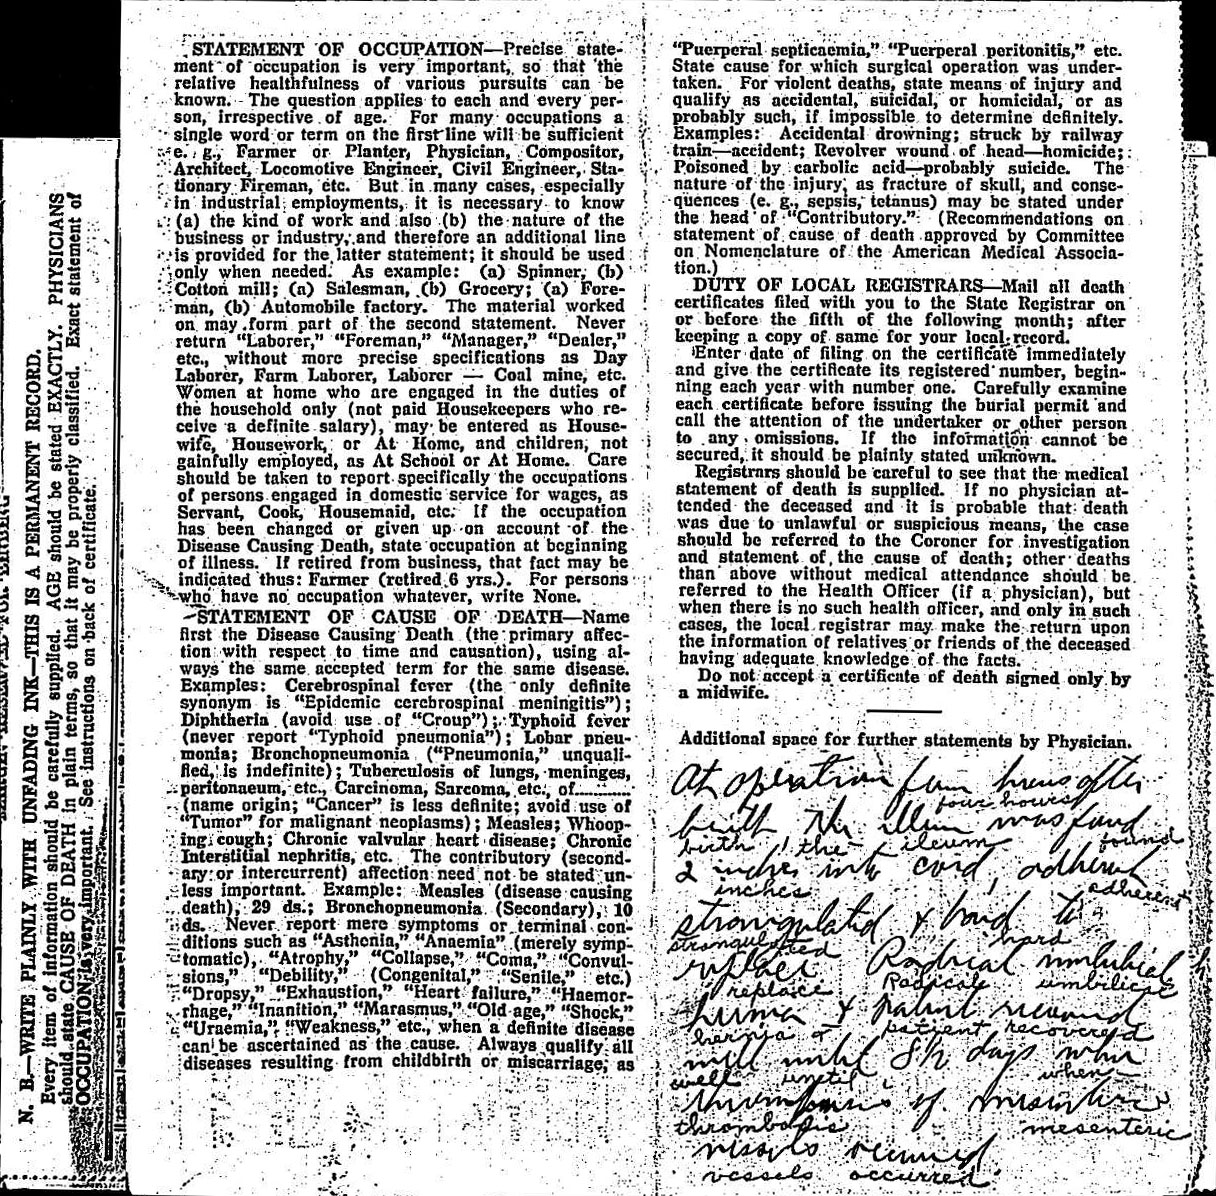 N. B.—WRITE PLAINLY WITH UNFADING INK—THIS IS A PERMANENT RECORD.
Every item of information should be carefully supplied. AGE should be stated EXACTLY. PHYSICIANS
should state CAUSE OF DEATH in plain terms, so that it may be properly classified. Exact statement of
OCCUPATION is very important. See instructions on back of certificate.
STATEMENT OF OCCUPATION—Precise state-
ment of occupation is very important, so that the
relative healthfulness of various pursuits can be
known. The question applies to each and every per-
son, irrespective of age. For many occupations a
single word or term on the first line will be sufficient
e. g., Farmer or Planter, Physician, Compositor,
Architect, Locomotive Engineer, Civil Engineer, Sta-
tionary Fireman, etc. But in many cases, especially
in industrial employments, it is necessary to know
(a) the kind of work and also (b) the nature of the
business or industry, and therefore an additional line
is provided for the latter statement; it should be used
only when needed. As example: (a) Spinner, (b)
Cotton mill; (a) Salesman, (b) Grocery; (a) Fore-
man, (b) Automobile factory. The material worked
on may form part of the second statement. Never
return "Laborer," "Foreman," "Manager," "Dealer,"
etc., without more precise specifications as Day
Laborer, Farm Laborer, Laborer — Coal mine, etc.
Women at home who are engaged in the duties of
the household only (not paid Housekeepers who re-
ceive a definite salary), may be entered as House-
wife, Housework, or At Home, and children, not
gainfully employed, as At School or At Home. Care
should be taken to report specifically the occupations
of persons engaged in domestic service for wages, as
Servant, Cook, Housemaid, etc. If the occupation
has been changed or given up on account of the
Disease Causing Death, state occupation at beginning
of illness. If retired from business, that fact may be
indicated thus: Farmer (retired 6 yrs.). For persons
who have no occupation whatever, write None.
STATEMENT OF CAUSE OF DEATH—Name
first the Disease Causing Death (the primary affec-
tion with respect to time and causation), using al-
ways the same accepted term for the same disease.
Examples: Cerebrospinal fever (the only definite
synonym is "Epidemic cerebrospinal meningitis");
Diphtheria (avoid use of "Croup"); Typhoid fever
(never report "Typhoid pneumonia"); Lobar pneu-
monia; Bronchopneumonia ("Pneumonia," unquali-
fied, is indefinite); Tuberculosis of lungs, meninges,
peritonaeum, etc., Carcinoma, Sarcoma, etc., of..........
(name origin; "Cancer" is less definite; avoid use of
"Tumor" for malignant neoplasms); Measles; Whoop-
ing cough; Chronic valvular heart disease; Chronic
Interstitial nephritis, etc. The contributory (second-
ary or intercurrent) affection need not be stated un-
less important. Example: Measles (disease causing
death), 29 ds.; Bronchopneumonia (Secondary), 10
ds. Never report mere symptoms or terminal con-
ditions such as "Asthenia," "Anaemia" (merely symp-
tomatic), "Atrophy," "Collapse," "Coma," "Convul-
sions," "Debility," (Congenital," "Senile," etc.)
"Dropsy," "Exhaustion," "Heart failure," "Haemor-
rhage," "Inanition," "Marasmus," "Old age," "Shock,"
"Uraemia," "Weakness," etc., when a definite disease
can be ascertained as the cause. Always qualify all
diseases resulting from childbirth or miscarriage, as
"Puerperal septicaemia," "Puerperal peritonitis," etc.
State cause for which surgical operation was under-
taken. For violent deaths, state means of injury and
qualify as accidental, suicidal, or homicidal, or as
probably such, if impossible to determine definitely.
Examples: Accidental drowning; struck by railway
train—accident; Revolver wound of head—homicide;
Poisoned by carbolic acid—probably suicide. The
nature of the injury, as fracture of skull, and conse-
quences (e. g., sepsis, tetanus) may be stated under
the head of "Contributory." (Recommendations on
statement of cause of death approved by Committee
on Nomenclature of the American Medical Associa-
tion.)
DUTY OF LOCAL REGISTRARS—Mail all death
certificates filed with you to the State Registrar on
or before the fifth of the following month; after
keeping a copy of same for your local record.
Enter date of filing on the certificate immediately
and give the certificate its registered number, begin-
ning each year with number one. Carefully examine
each certificate before issuing the burial permit and
call the attention of the undertaker or other person
to any omissions. If the information cannot be
secured, it should be plainly stated unknown.
Registrars should be careful to see that the medical
statement of death is supplied. If no physician at-
tended the deceased and it is probable that death
was due to unlawful or suspicious means, the case
should be referred to the Coroner for investigation
and statement of the cause of death; other deaths
than above without medical attendance should be
referred to the Health Officer (if a physician), but
when there is no such health officer, and only in such
cases, the local registrar may make the return upon
the information of relatives or friends of the deceased
having adequate knowledge of the facts.
Do not accept a certificate of death signed only by
a midwife.
Additional space for further statements by Physician.
At operation four hours after
four hours
birth the illium was found
birth the ileum found
2 inches into cord, adherent
inches adherent
strangulated & hard to
strangulated hard
replace Radical umbilical
replace Radical umbilical
hernia & patient recovered
hernia & patient recovered
well until 8½ days when
well until when
thrombosis of mesenteric
thrombosis mesenteric
vessels occurred
vessels occurred